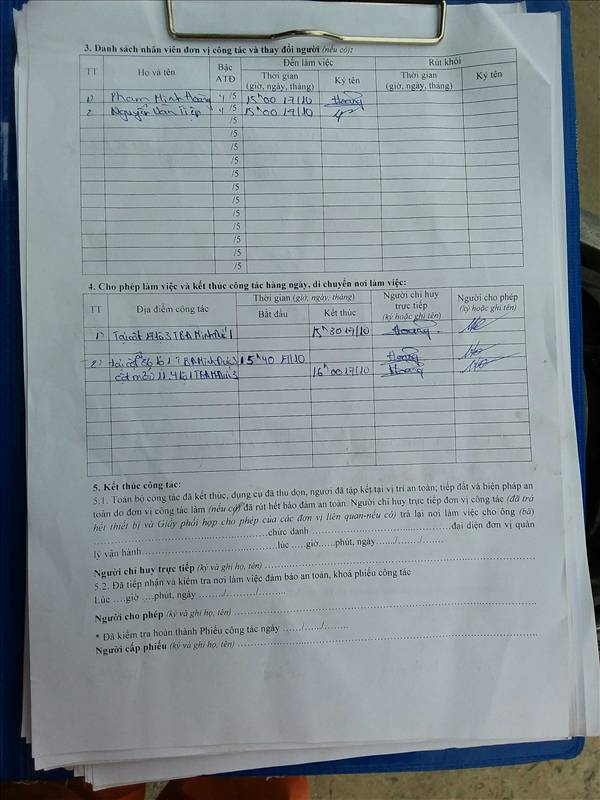 3. Danh sách nhân viên đơn vị công tác và thay đổi người (nếu có):
TT Họ và tên Bậc ATĐ Đến làm việc Rút khỏi
Thời gian (giờ, ngày, tháng) Ký tên Thời gian (giờ, ngày, tháng) Ký tên
1) Phạm Minh Hoàng 4/5 15h00 17/10 Hoàng
2 Nguyễn Văn Tiệp 4/5 15h00 17/10
/5
/5
/5
/5
/5
/5
/5
/5
/5
/5
/5
/5
4. Cho phép làm việc và kết thúc công tác hàng ngày, di chuyển nơi làm việc:
TT Địa điểm công tác Thời gian (giờ, ngày, tháng) Người chỉ huy trực tiếp (ký hoặc ghi tên) Người cho phép (ký hoặc ghi tên)
Bắt đầu Kết thúc
1) Tại cột TBA Minh 1 15h30 17/10 Hoàng
2) Tại cột TBA Minh Đức 3 15h40 17/10 Hoàng
cột 16h00 17/10 Hoàng
5. Kết thúc công tác:
5.1. Toàn bộ công tác đã kết thúc, dụng cụ đã thu dọn, người đã tập kết tại vị trí an toàn; tiếp đất và biện pháp an
toàn do đơn vị công tác làm (nếu có) đã rút hết bảo đảm an toàn. Người chỉ huy trực tiếp đơn vị công tác (đã trả
hết thiết bị và Giấy phối hợp cho phép của các đơn vị liên quan-nếu có) trả lại nơi làm việc cho ông (bà)
........chức danh ........đại diện đơn vị quản
lý vận hành........lúc .....giờ.....phút, ngày....../......./.......
Người chỉ huy trực tiếp (ký và ghi họ, tên) ........
5.2. Đã tiếp nhận và kiểm tra nơi làm việc đảm bảo an toàn, khoá phiếu công tác
Lúc ....giờ ....phút, ngày ......./........./........
Người cho phép (ký và ghi họ, tên) ........
* Đã kiểm tra hoàn thành Phiếu công tác ngày ....../....../.......
Người cấp phiếu (ký và ghi họ, tên) ........